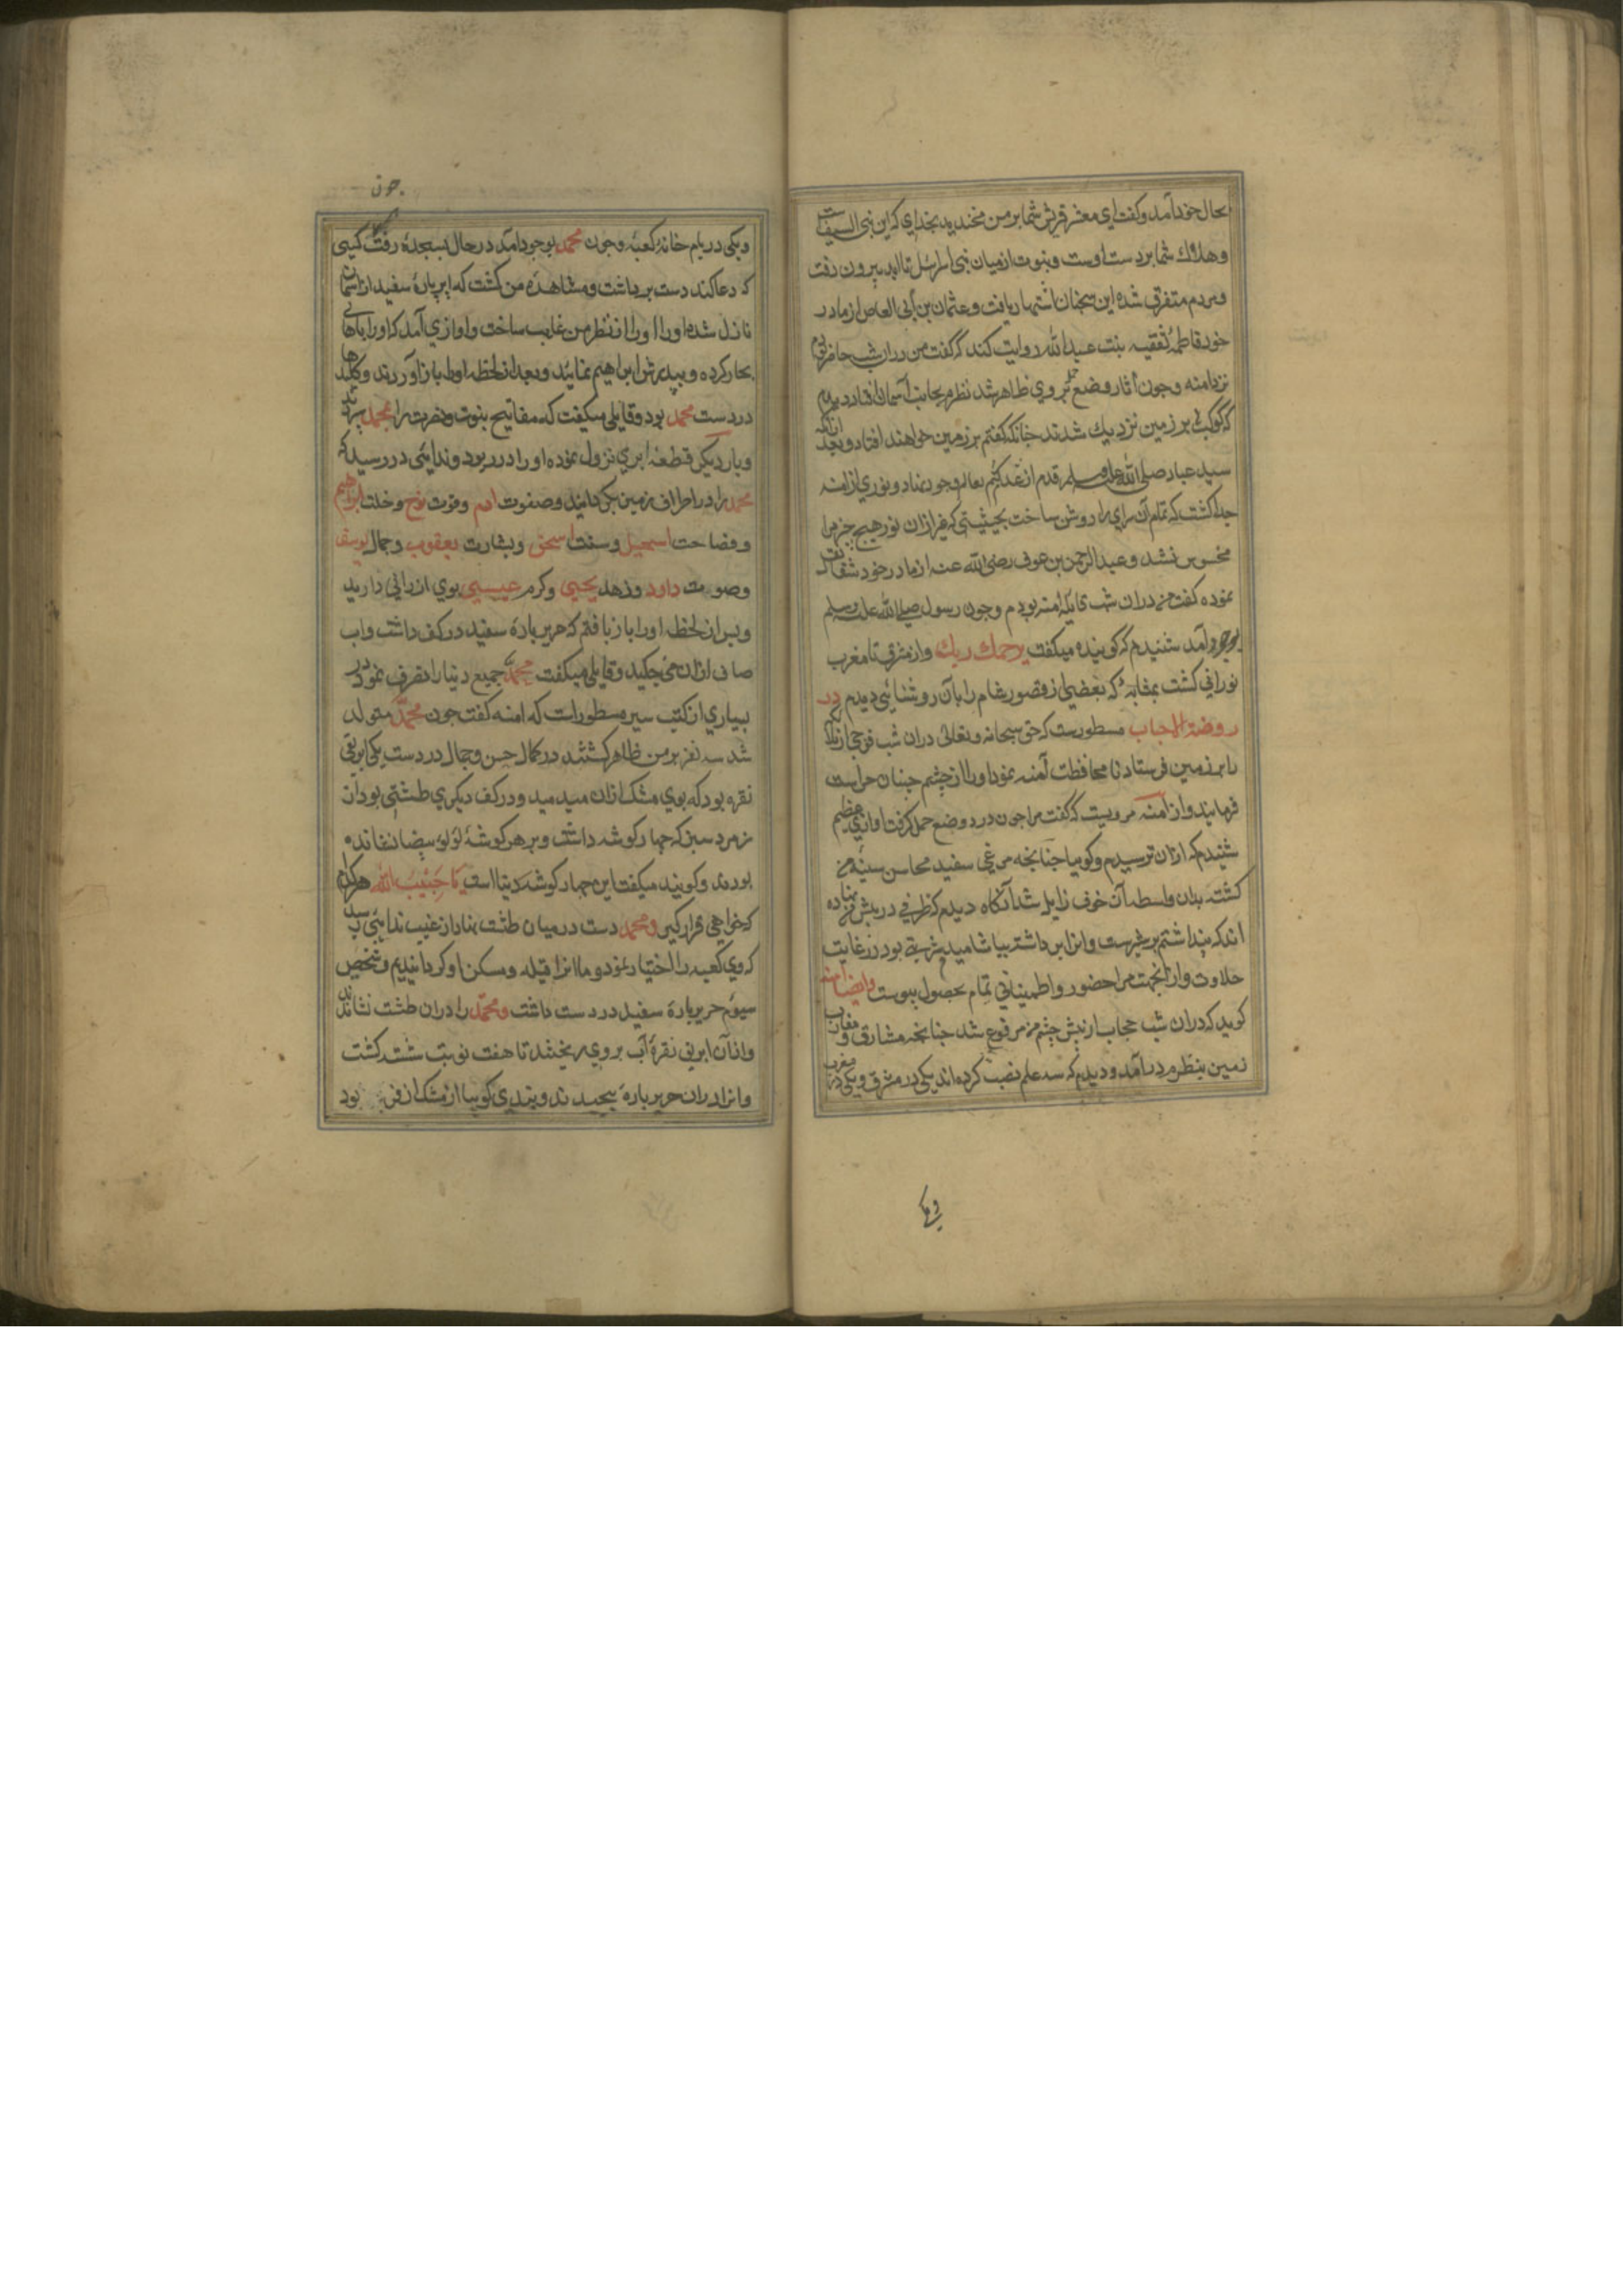 بحال خود آمد و کفت ای معشر قریش شما بر من مخندید بخدای که این نبی السیف است
و هلاك شما بر دست اوست و نبوت از میان بنی اسرائیل تا ابد بیرون رفت
و مردم متفرق شده این سخنان اشتهار یافت و عثمان بن ابی العاص از مادر
خود فاطمه ثقفیه بنت عبد الله روایت کند که گفت من دران شب حاضر بودم
نزد امنه و چون آثار وضع حمل بروی ظاهر شد نظرم بجانب آسمان افتاد دیدم
که کواکب بر زمین نزدیك شدند چنانکه کفتم بر زمین خواهند افتاد و بعد ازانکه
سید عباد صلی الله علیه وسلم قدم از عدم کتم بعالم وجود نهاد و نوری از امنه
جدا کشت که تمام آن سرای را روشن ساخت بحیثیتی که غیر ازان نور هیچ چیز مرا
محسوس نشد و عبد الرحمن بن عوف رضی الله عنه از مادر خود شفا نقل
نموده کفت من دران شب قابله امنه بودم و چون رسول صلی الله علیه وسلم
بوجود آمد شنیدم که کوینده میکفت یرحمك ربك و از مشرق تا مغرب
نورانی کشت بمثابه که بعضی از قصور شام را بآن روشنائی دیدم در
روضة الاحباب مسطورست که حق سبحانه و تعالی دران شب فوجی از ملائکه
را بر زمین فرستاد تا محافظت آمنه نمود او را از چشم جنیان حراست
فرمایند و از امنه مرویست که کفت مرا چون درد وضع حمل کرفت اوازی عظیم
شنیدم که ازان ترسیدم و کویا چنانچه مرغی سفید محاسن سینه من
کشت بدان واسطه آن خوف زایل شد آنکاه دیدم که ظرفی در پیش من نهاده
اند که پنداشتم پر شیرست و انرا برداشته بیاشامیدم شربتی بود در غایت
حلاوت و ازانجهت مرا حضور و اطمینانی تمام بحصول پیوست وایضا امنه
کوید که دران شب حجاب از پیش چشم من مرفوع شد چنانچه مشارق و مغارب
زمین بنظرم در آمد و دیدم که سه علم نصب کرده اند یکی در مشرق و یکی در مغرب
و یکی
چون
و یکی در بام خانه کعبه و چون محمد بوجود آمد در حال بسجده رفت کسی
که دعا کند دست برداشت و مشاهده من کشت که ابر پاره سفید از آسمان
نازل شده او را از نظر من غایب ساخت و اوازی آمد که او را باهالی
بحار کرده و بپدرش ابراهیم نمائید و بعد از لحظه او را باز آوردند و کلیدها
در دست محمد بود و قایلی میکفت که مفاتیح نبوت و نصرت را بمحمد سپردند
و بار دیکر قطعه ابری نزول نموده او را در ربود و ندایی در رسید که
محمد را در اطراف زمین بکردانید و صفوت ادم و قوت نوح و خلت ابراهیم
و فصاحت اسمعیل و سنت اسحق و بشارت یعقوب و جمال یوسف
و صوت داود و زهد یحیی و کرم عیسی بوی ارزانی دارید
و پس از لحظه او را باز یافتم که حریر پاره سفید در کف داشت و اب
صافی ازان می چکید و قایلی میکفت محمد جمیع دنیا را تصرف نمود در
بسیاری از کتب سیر مسطور است که امنه کفت چون محمد متولد
شد سه نفر بر من ظاهر کشتند در کمال حسن و جمال در دست یکی ابریقی
نقره بود که بوی مشك ازان میدمید و در کف دیکری طشتی بود از
زمرد سبز که چهار کوشه داشت و بر هر کوشه لؤلؤ بیضا نشانده
بودند و کوینده میکفت این چهار کوشه دنیا است یا حبیب الله هر کدام
که خواهی قرار کیر و محمد دست در میان طشت نهاد از غیب ندایی رسید
که وی کعبه را اختیار نمود و ما انرا قبله و مسکن او کردانیدیم و شخص
سیوم حریر پاره سفید در دست داشت و محمد را دران طشت نشاند
و ازان ابریق نقره آب بر وی ریختند تا هفت نوبت شسته کشت
و انرا دران حریر پاره پیچیدند و بندی کویا از مشك اذفر بود